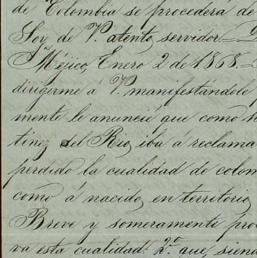 de Colombia se procederá de
Soy de V. atento servidor.
Méjico, Enero 2 de 1868.
dirigirme a V. manifestándole
mente le anuncié que como h
tinez del Rio, iba a reclama
perdido la cualidad de colom
como á nacido, en territorio
Breve y someramente pro
va esta cualidad: 2º que, siend